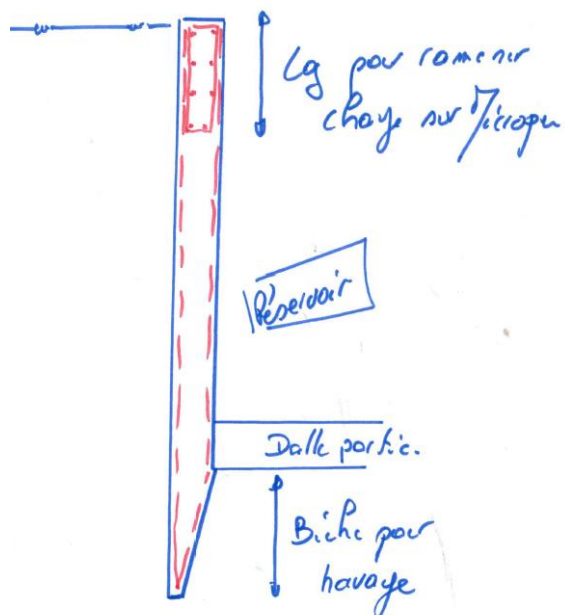 Lg pour ramener
charge sur Micropieu
Réservoir
Dalle portée.
Bêche pour
havage